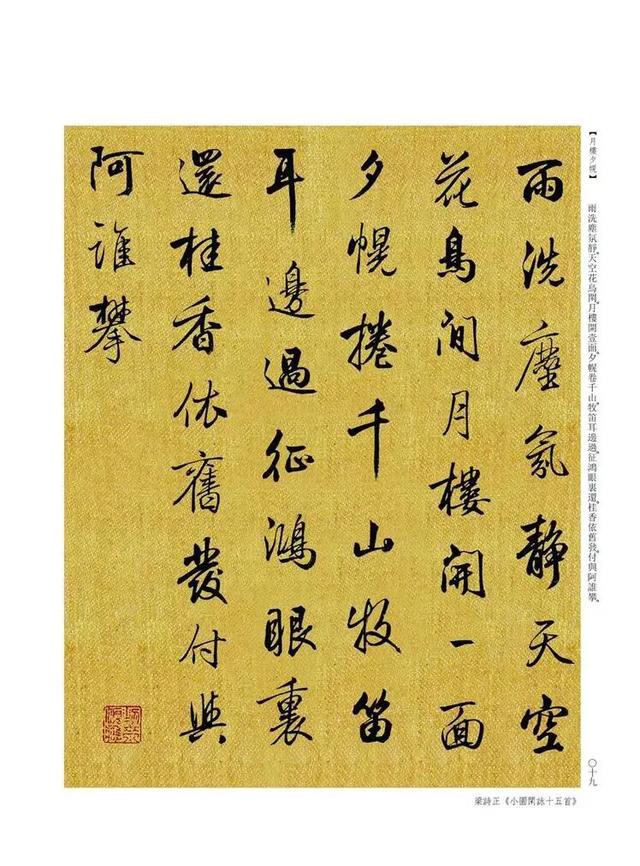 【月樓夕幌】
雨洗塵氛靜天空花鳥閑月樓開壹面夕幌卷千山牧笛耳邊過征鴻眼裏還桂香依舊發付與阿誰攀
雨洗塵氛靜天空
花鳥閒月樓開一面
夕幌捲千山牧笛
耳邊過征鴻眼裏
還桂香依舊發付與
阿誰攀
〇十九
梁詩正《小園閑詠十五首》